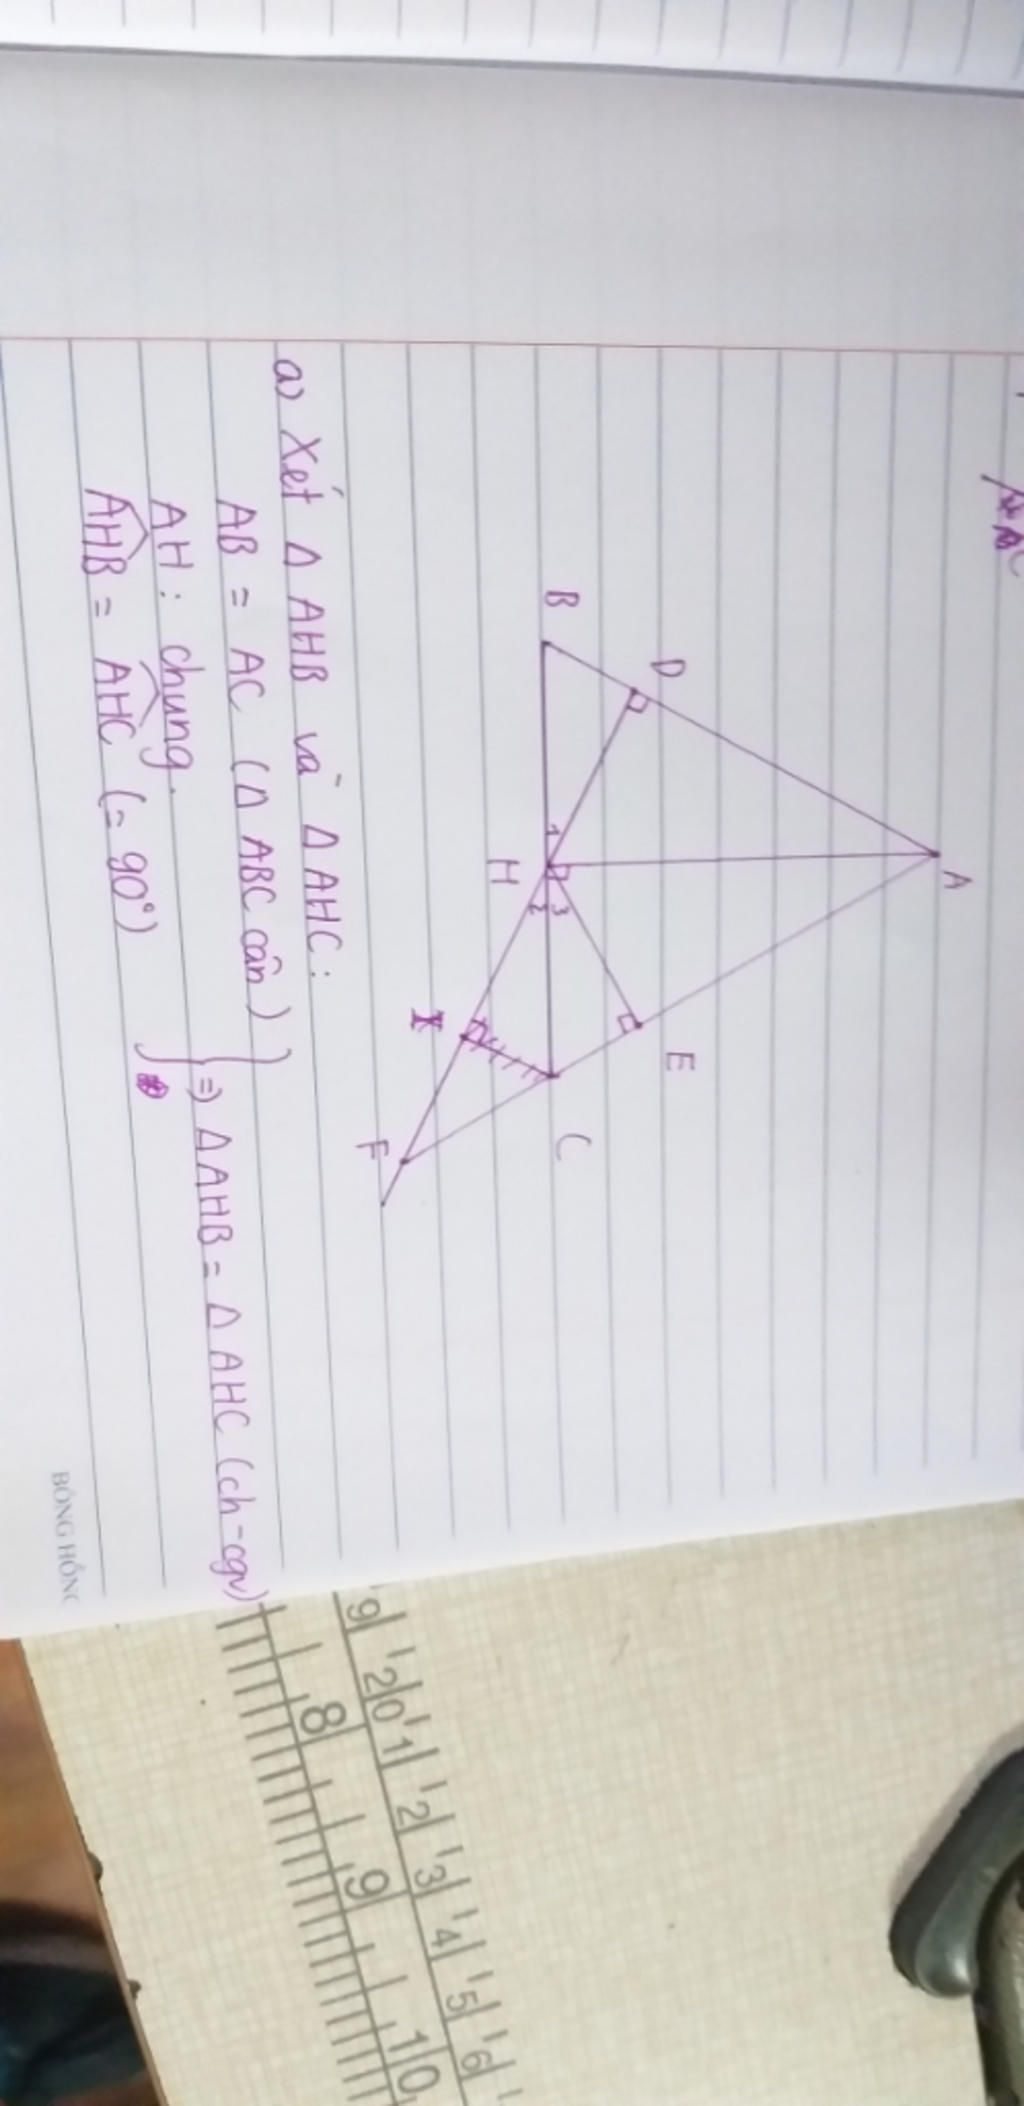 A
D
E
B
1
3
2
H
C
I
F
a) Xét Δ AHB và Δ AHC:
AB = AC (Δ ABC cân)
AH: chung.
⇒ Δ AHB = Δ AHC (ch-cgv)
AHB = AHC (= 90°)
BÔNG HỒNG
9 20 1 2 3 4 5 6
8 9 10